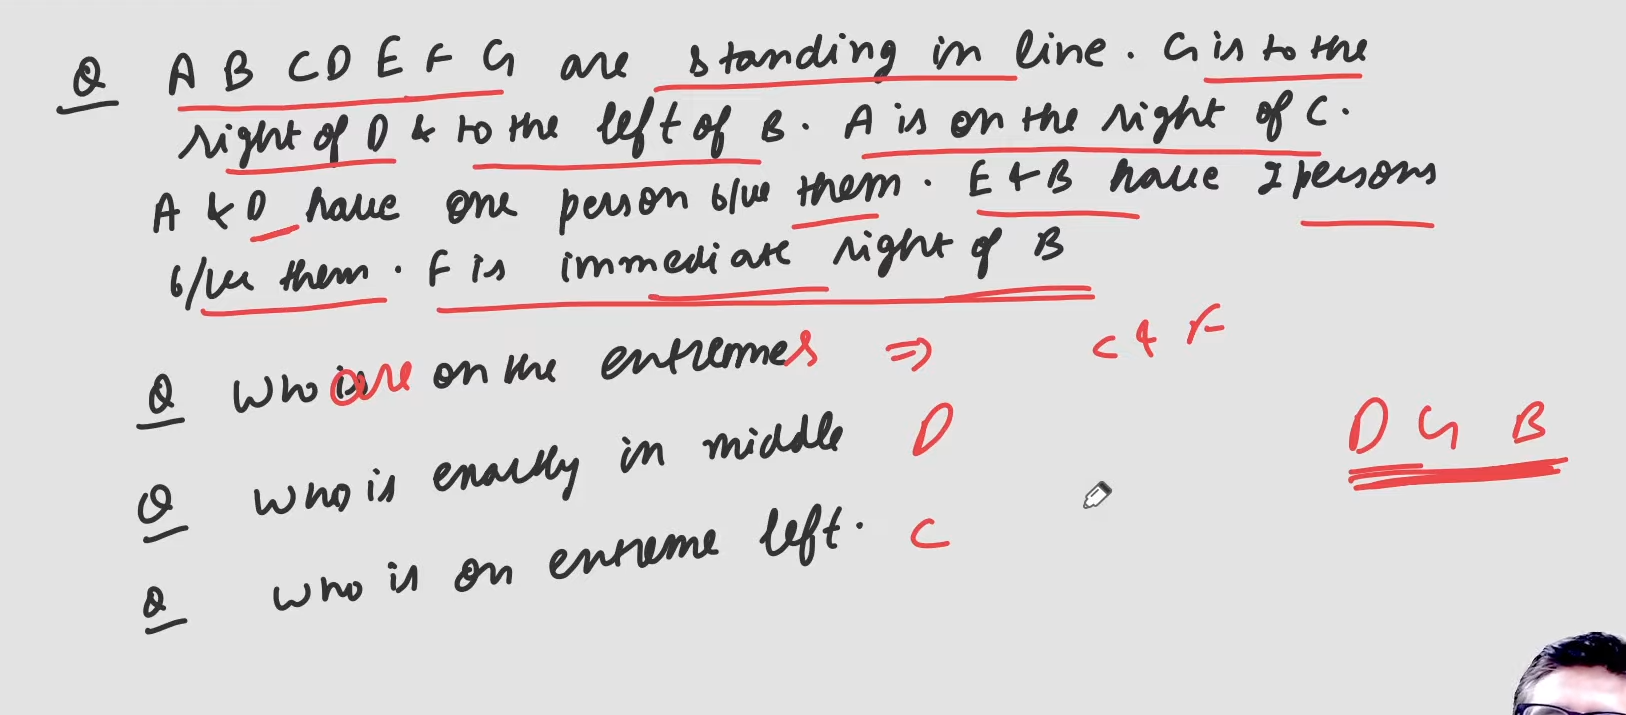 Q A B C D E F G are standing in line. G is to the
right of D & to the left of B. A is on the right of C.
A & D have one person b/w them. E & B have 2 persons
b/w them. F is immediate right of B
Q Who are on the extremes ⇒ C & F
D G B
Q Who is exactly in middle D
Q Who is on extreme left. C